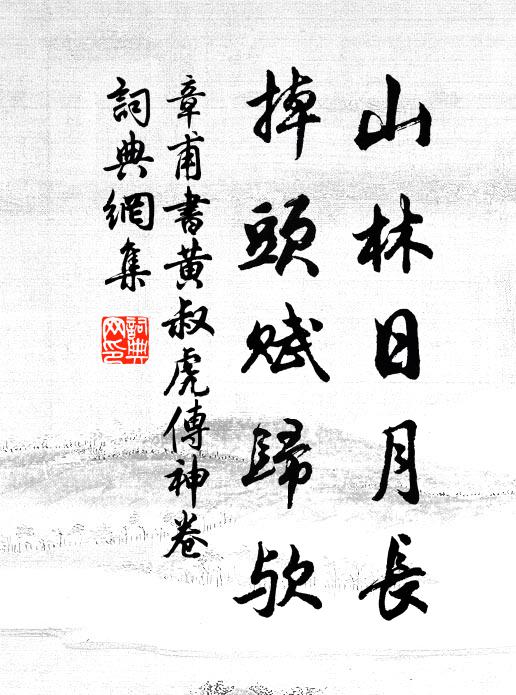 山林日月長
掉頭賦歸欤
章甫書黄叔虎傳神卷
詞典網集
詞典
网印